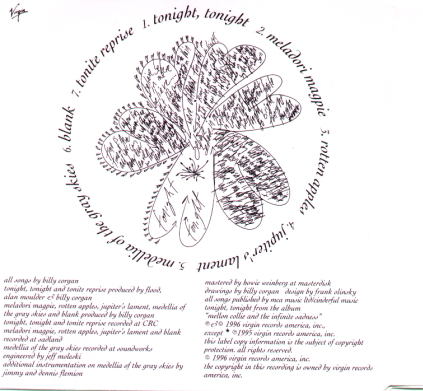 Virgin
1. tonight, tonight
2. meladori magpie
3. rotten apples
4. jupiter's lament
5. medellia of the gray skies
6. blank
7. tonite reprise
all songs by billy corgan
tonight, tonight and tonite reprise produced by flood,
alan moulder & billy corgan
meladori magpie, rotten apples, jupiter's lament, medellia of
the gray skies and blank produced by billy corgan
tonight, tonight and tonite reprise recorded at CRC
meladori magpie, rotten apples, jupiter's lament and blank
recorded at sadland
medellia of the gray skies recorded at soundworks
engineered by jeff moleski
additional instrumentation on medellia of the gray skies by
jimmy and dennis flemion
mastered by howie weinberg at masterdisk
drawings by billy corgan design by frank olinsky
all songs published by mca music ltd/cinderful music
tonight, tonight from the album
"mellon collie and the infinite sadness"
℗ & © 1996 virgin records america, inc.,
except * ℗ 1995 virgin records america, inc.
this label copy information is the subject of copyright
protection. all rights reserved.
© 1996 virgin records america, inc.
the copyright in this recording is owned by virgin records
america, inc.